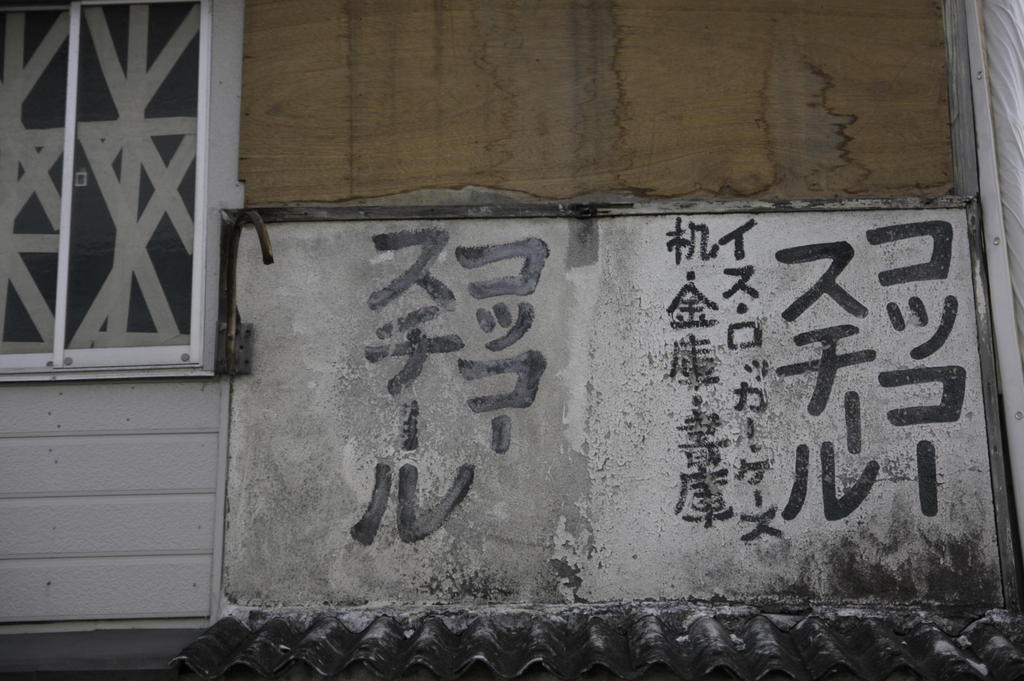 コッコー
スチール
イス・ロッカーケース
机・金庫・書庫
コッコー
スチール